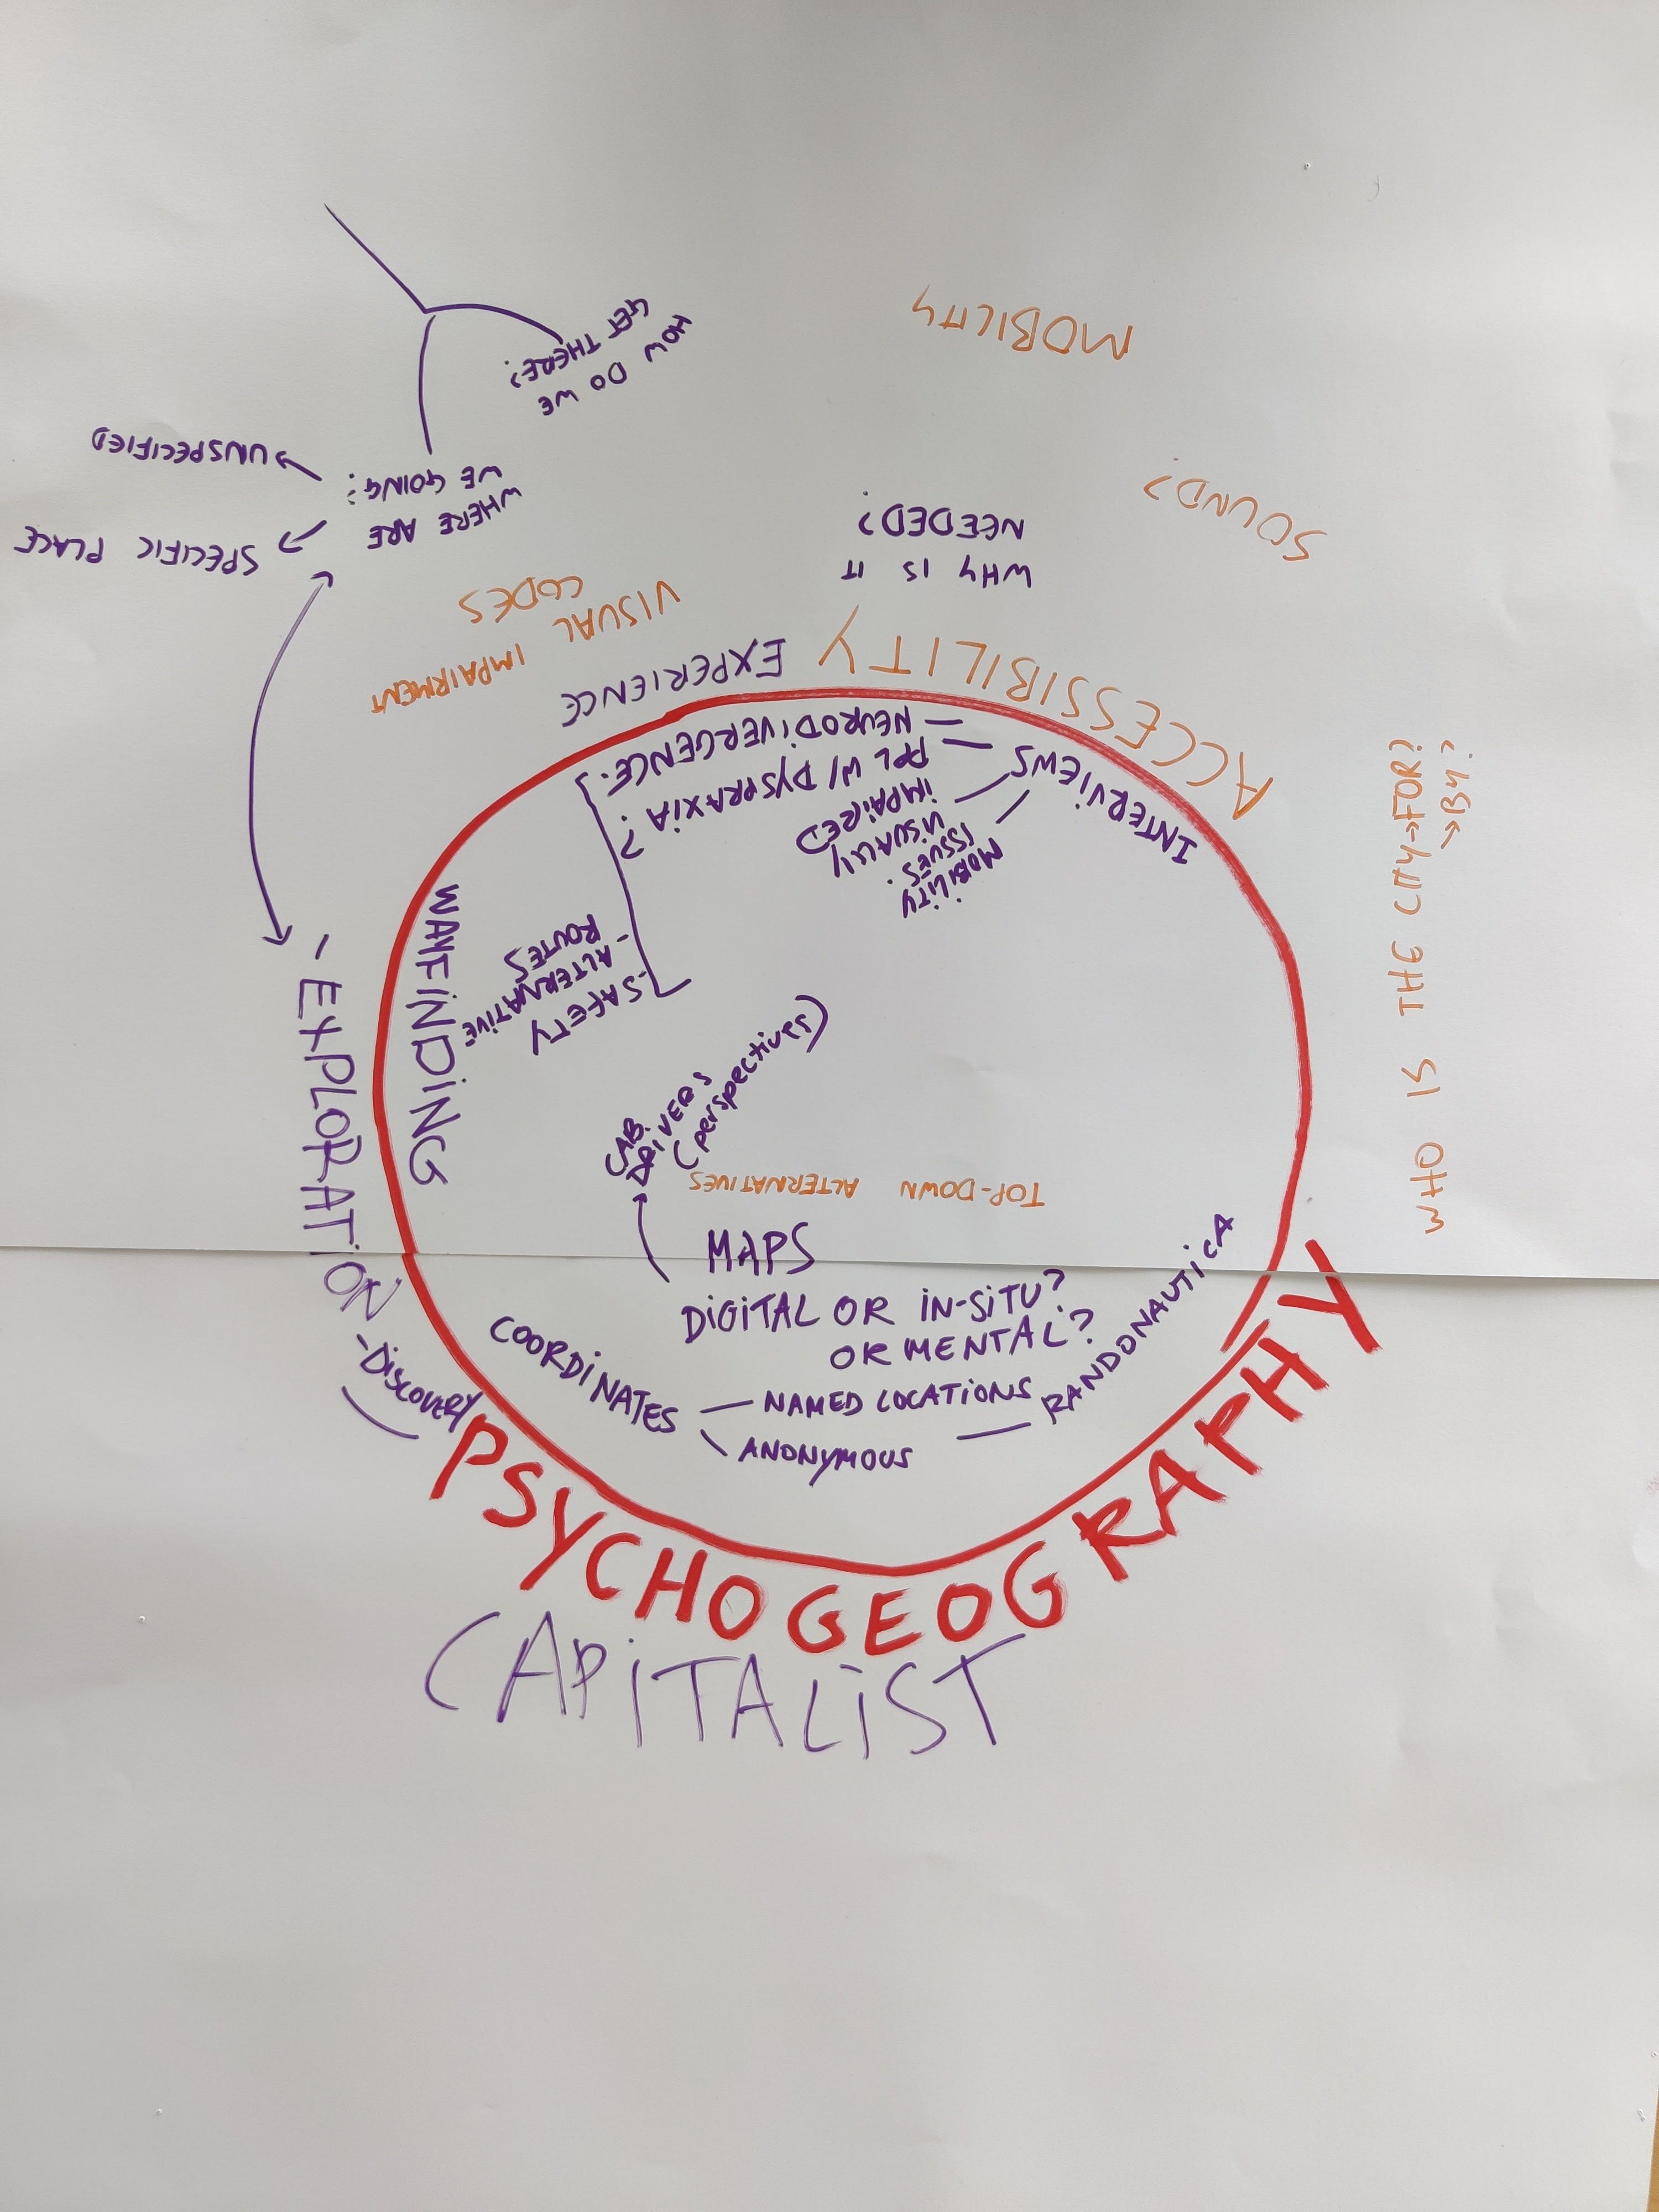 MOBILITY
SOUND?
HOW DO WE
GET THERE?
WHERE ARE
WE GOING?
UNSPECIFIED
SPECIFIC PLACE
WHY IS IT
NEEDED?
VISUAL IMPAIRMENT
CODES
ACCESSIBILITY
EXPERIENCE
INTERVIEWS
NEURODIVERGENCE.
PPL W/ DYSPRAXIA?
VISUALLY
IMPAIRED
MOBILITY
ISSUES.
WHO IS THE CITY→FOR?
→BY?
WAYFINDING
-SAFETY
-ALTERNATIVE
ROUTES
- EXPLORATION
-DISCOVERY
CAB.
DRIVERS
(perspectives)
TOP-DOWN ALTERNATIVES
MAPS
DIGITAL OR IN-SITU?
OR MENTAL?
COORDINATES
NAMED LOCATIONS
ANONYMOUS
RANDONAUTICA
PSYCHOGEOGRAPHY
CAPITALIST